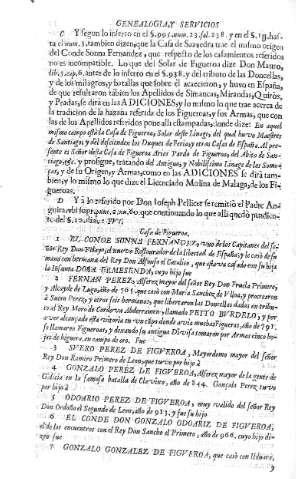 GENEALOGIA, Y SERVICIOS
C Y segun lo infero en el §. 995. num. 23. fol. 238. y en el §. 19. has-
ta el num. 3. tambien dizen, que la Casa de Saavedra trae el mismo origen
del Conde Sonna Fernandez, que respecto de los casamientos referidos
no es incompatible. Lo que del Solar de Figueroa dize Don Mauro,
antes de lo inserto en el §. 938. y del tributo de las Doncellas,
y de los milagros, y batallas que sobre el acaecieron, y huvo en España,
de que resultaron tãbien los Apellidos de Simancas, Mirandas, Quirós,
y Pradas, se dirà en las ADICIONES, y lo mismo lo que trae acerca de
la tradicion de la hazaña referida de los Figueroas, y sus Armas, que con
las de los Apellidos referidos pone alli estampadas, donde dize: En aquel
mismo campo està la Casa de Figueroa, Solar deste Linage, del qual huvo Maestres
de Santiago, y del descienden los Duques de Feria, y otras Casas de España. Al pre-
sente es Señor desta Casa de Figueroa Arias Pardo de Figueroa, del Abito de San-
tiago, y prosigue, tratando del Antiguo, y Nobilissimo Linage de los Somo-
zas, y de su Origen, y Armas, como en las ADICIONES se dirà tam-
bien, y lo mismo lo que dize el Licenciado Molina de Malaga, de los Fi-
gueroas.
D Y à lo referido por Don Joseph Pellicer se remitiò el Padre An-
guiano num. 80. que continuando lo que allà quedò pendien-
te del §.
Casa de Figueroa.
1 EL CONDE SONNA FERNANDEZ, uno de los Capitanes del se-
ñor Rey Don Pelayo, el nuevo Restaurador de la libertad de España, y lo casò su
mano con hermana del Rey Don Alfonso el Catolico, que estava casado con su hija
la Infanta DOÑA ERMESENDA, cuyo hijo fue
2 FERNAN PEREZ, Alferez mayor del señor Rey Don Fruela Primero,
y Alcayde de Lugo, año de 761. que casò con Maria Sanchez de Ulloa, y procrearon
à Suero Perez, y otros seis hermanos, que libertaron las Doncellas dadas en tribu-
to al Rey Moro de Cordova Abderramen, llamado PEITO BURDELO, y por
aver alcançado esta vitoria en un cãpo donde avia muchas Figueras, año de 791.
se llamaron Figueroas, y dexando su antigua Divisa tomaron por Armas cinco ho-
jas de higuera, en campo de oro. Fue
3 SUERO PEREZ DE FIGUEROA, Mayordomo mayor del señor
Rey Don Ramiro Primero de Leon, que tuvo por hijo à
4 GONZALO PEREZ DE FIGUEROA, Alferez mayor de la gente de
Galicia en la famosa batalla de Clavixo, año de 844. Gonçalo Perez tuvo
por hijo à
5 ODOARIO PEREZ DE FIGUEROA, muy valido del señor Rey
Don Ordoño el Segundo de Leon, año de 913. y fue su hijo
6 EL CONDE DON GONZALO ODOARIZ DE FIGUEROA,
el de los encuentros con el Rey Don Sancho el Primero, año de 966. cuyo hijo di-
zen fue
7 GONZALO GONZALEZ DE FIGUEROA, que casò con Ilduara,
9